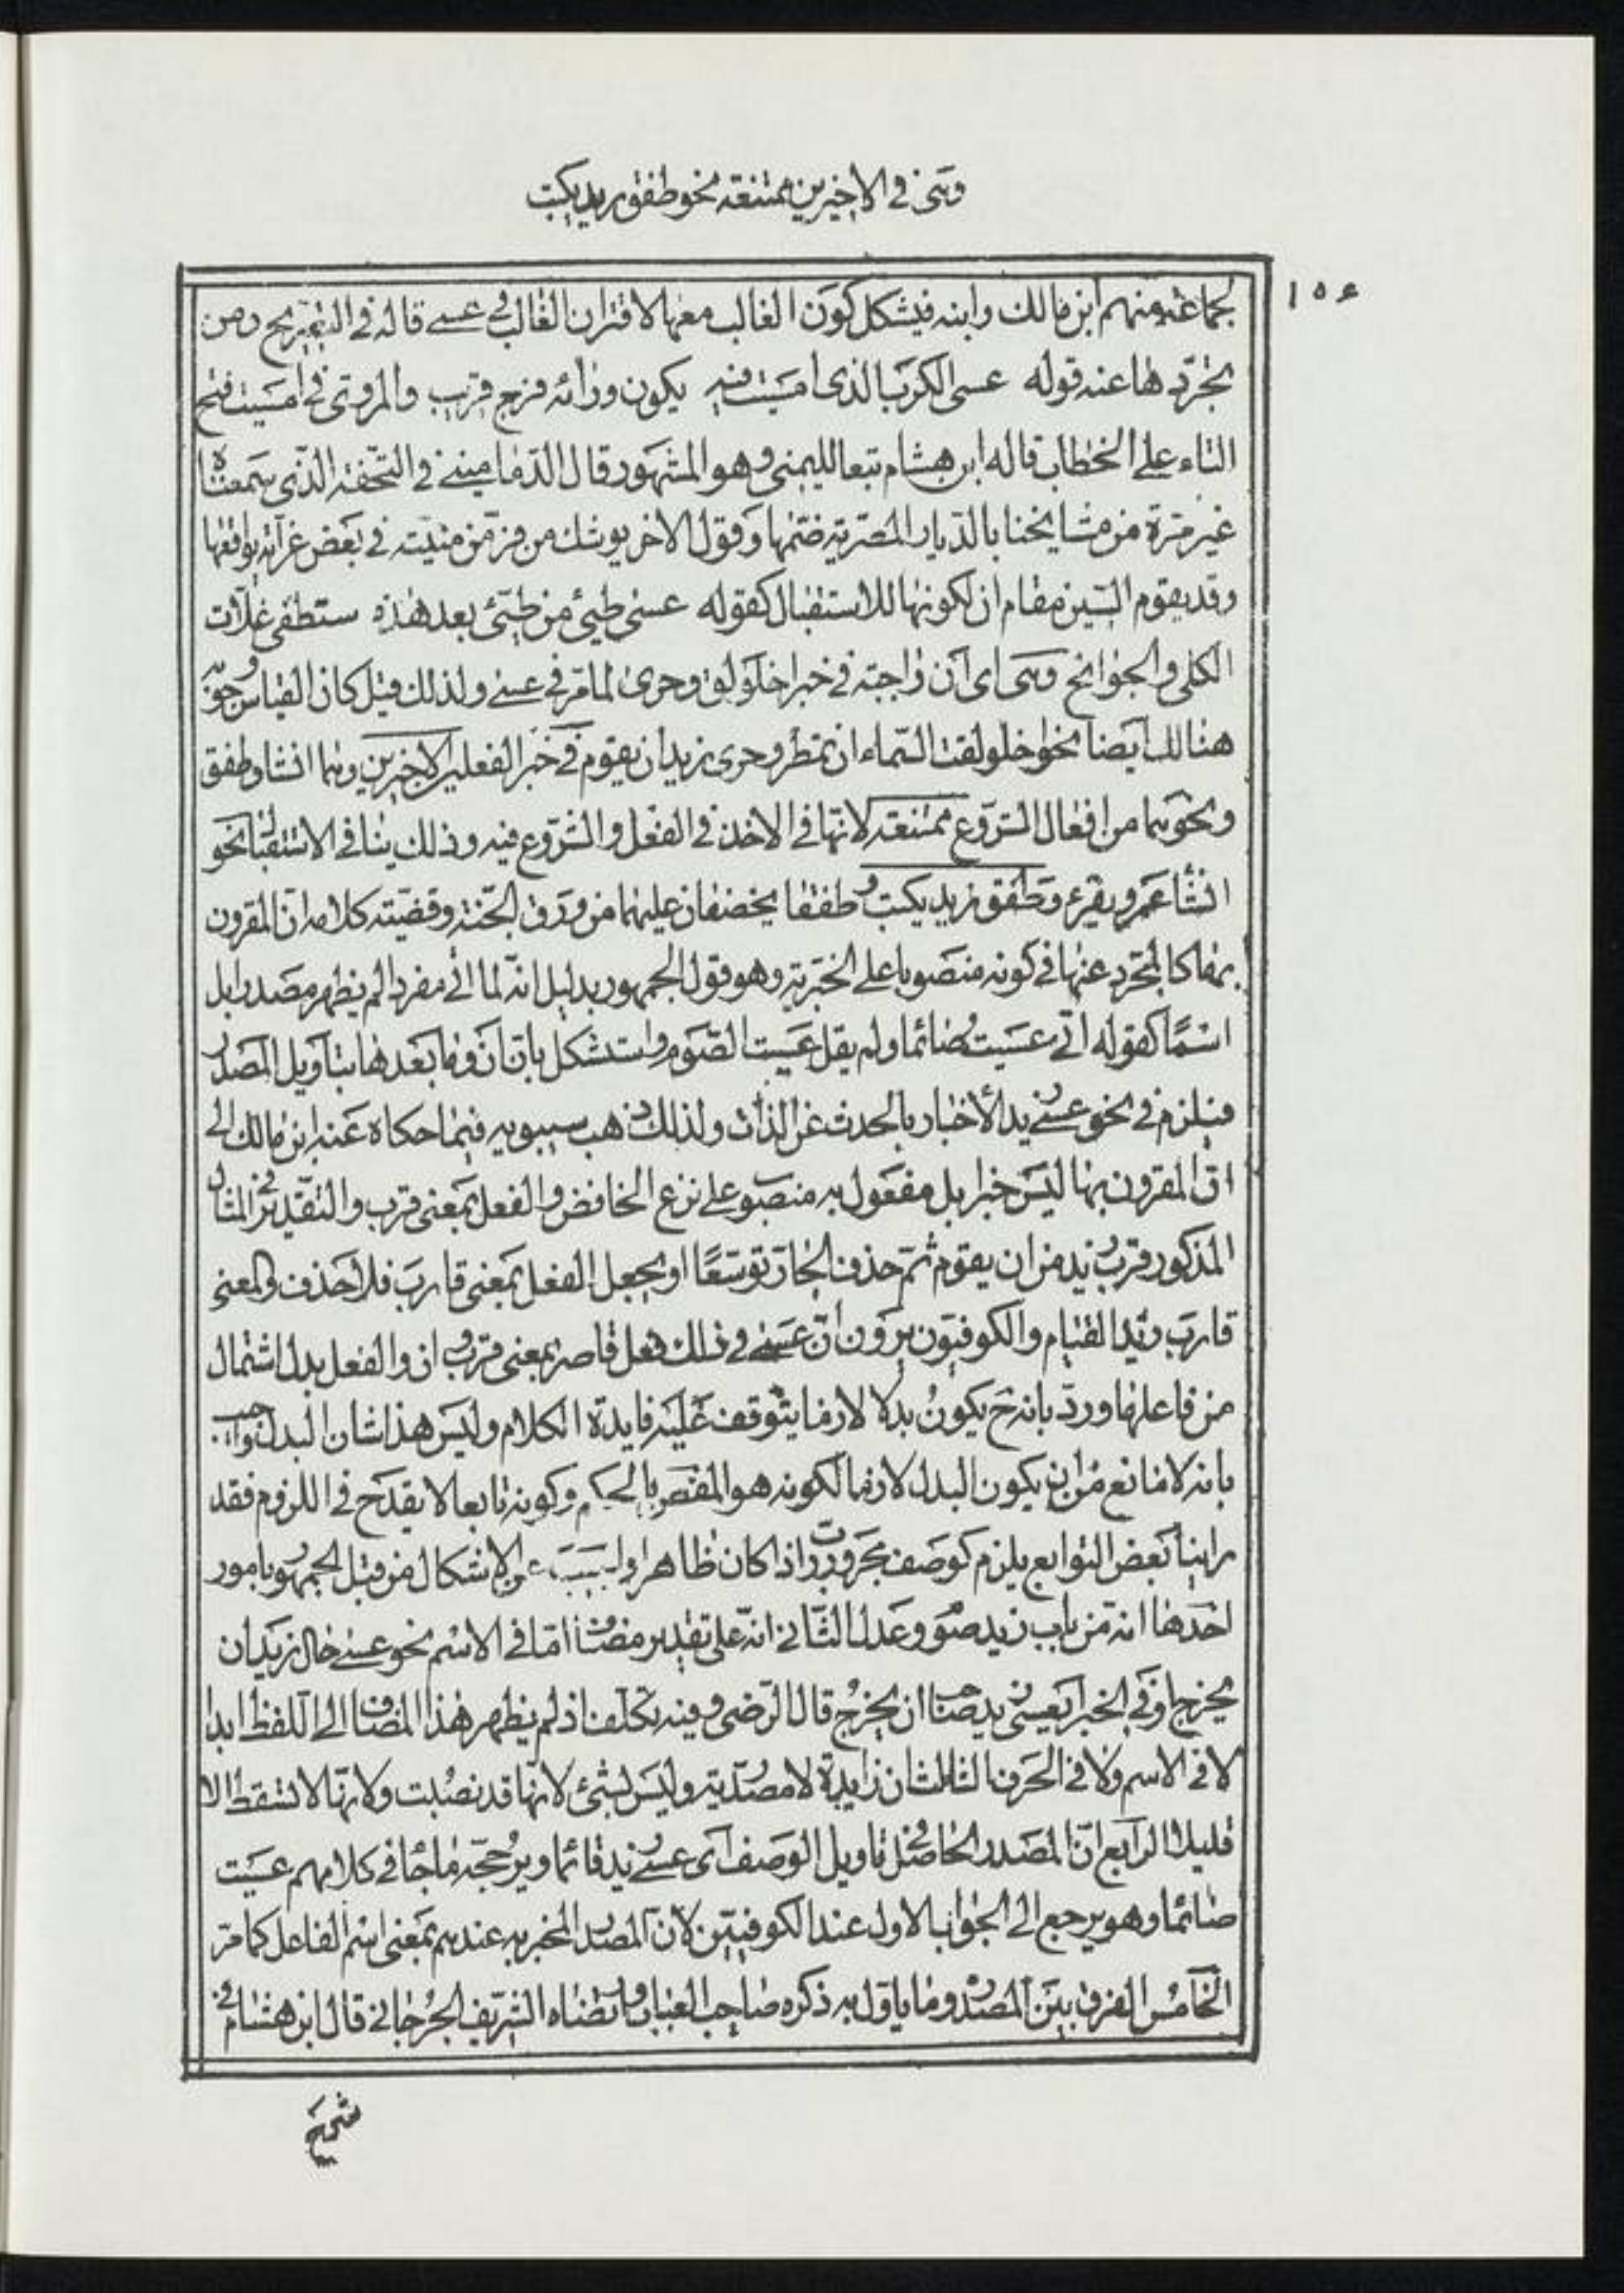 وهی فی الاخیرین ممتنعة نحو طفق زید یکتب
١٥٤
لجماعة منهم ابن مالك وابنه فیشکل کون الغالب معها الاقتران الغالب فی عسی قاله فی التصریح ومن
تجرّدها عنه قوله عسی الکرب الذی امسیت فیه یکون ورائه فرج قریب والمروی فی امسیت فتح
التاء علی الخطاب قاله ابن هشام تبعا للیمنی وهو المشهور قال الدمامینی فی التحفة الذی سمعناه
غیر مرّة من مشایخنا بالدّیار المصریة ضمّها وقول الاخر یوشك من فرّ من منیّته فی بعض غرّاته یوافقها
وقد یقوم السّین مقام ان لکونها للاستقبال کقوله عسی طیئ من طیّئ بعد هذه ستطفی غلّات
الکلی والجوانح وهی ای ان واجبة فی خبر اخلولق وحری لما مرّ فی عسی ولذلك قیل کان القیاس وجوبه
هنالك ایضا نحو اخلولقت السّماء ان تمطر وحری زید ان یقوم فی خبر الفعلین الاخیرین وهما انشا وطفق
ونحوهما من افعال الشروع ممتنعة لانّها فی الاخذ فی الفعل والشروع فیه وذلك ینافی الاستقبال نحو
انشأ عمرو یقرء وطفق زید یکتب وطفقا یخصفان علیهما من ورق الجنّة وقضیّة کلامه انّ المقرون
بها کالمجرّد عنها فی کونه منصوبا علی الخبریة وهو قول الجمهور بدلیل انّه لما اتی مفردا لم یظهر مصدرا بل
اسمًا کقوله انّی عسیت صائما ولم یقل عسیت الصّوم واستشکل بانّ ان وما بعدها بتاویل المصدر
فیلزم فی نحو عسی زید الأخبار بالحدث عن الذّات ولذلك ذهب سیبویه فیما حکاه عنه ابن مالك الی
انّ المقرون بها لیس خبرا بل مفعول به منصوب علی نزع الخافض والفعل بمعنی قرب والتقدیر فی المثال
المذکور قرب زید من ان یقوم ثمّ حذف الجارّ توسّعًا او یجعل الفعل بمعنی قارب فلا حذف والمعنی
قارب زید القیام والکوفیّون یرون انّ عسی فی ذلك فعل قاصر بمعنی قرب وان والفعل بدل اشتمال
من فاعلها وردّ بانه ح یکون بدلا لازما یتوقف علیه فایدة الکلام ولیس هذا شان البدل واجیب
بانه لا مانع من ان یکون البدل لازما لکونه هو المقصود بالحکم وکونه تابعا لا یقدح فی اللزوم فقد
راینا بعض التوابع یلزم کوصف مجرور ربّ اذا کان ظاهرا واجیب عن الاشکال من قبل الجمهور بامور
احدها انّه من باب زید صوم وعدل الثّانی انّه علی تقدیر مضاف امّا فی الاسم نحو عسی حال زید ان
یخرج او فی الخبر ای عسی زید صاحب ان یخرج قال الرّضی وفیه تکلف اذ لم یظهر هذا المضاف الی اللفظ ابدا
لا فی الاسم ولا فی الخبر الثالث ان زایدة لا مصدریة ولیس بشیئ لانّها قد نصبت ولانّها لا تسقط الا
قلیلا الرابع انّ المصدر الحاصل فی تاویل الوصف ای عسی زید قائما ویرجّحه ما جاء فی کلامهم عسیت
صائما وهو یرجع الی الجواب الاول عند الکوفیین لانّ المصدر المخبر به عندهم بمعنی اسم الفاعل کما مرّ
الخامس الفرق بین المصدر وما یاول به ذکره صاحب العباب وارتضاه الشریف الجرجانی قال ابن هشام فی
شرح